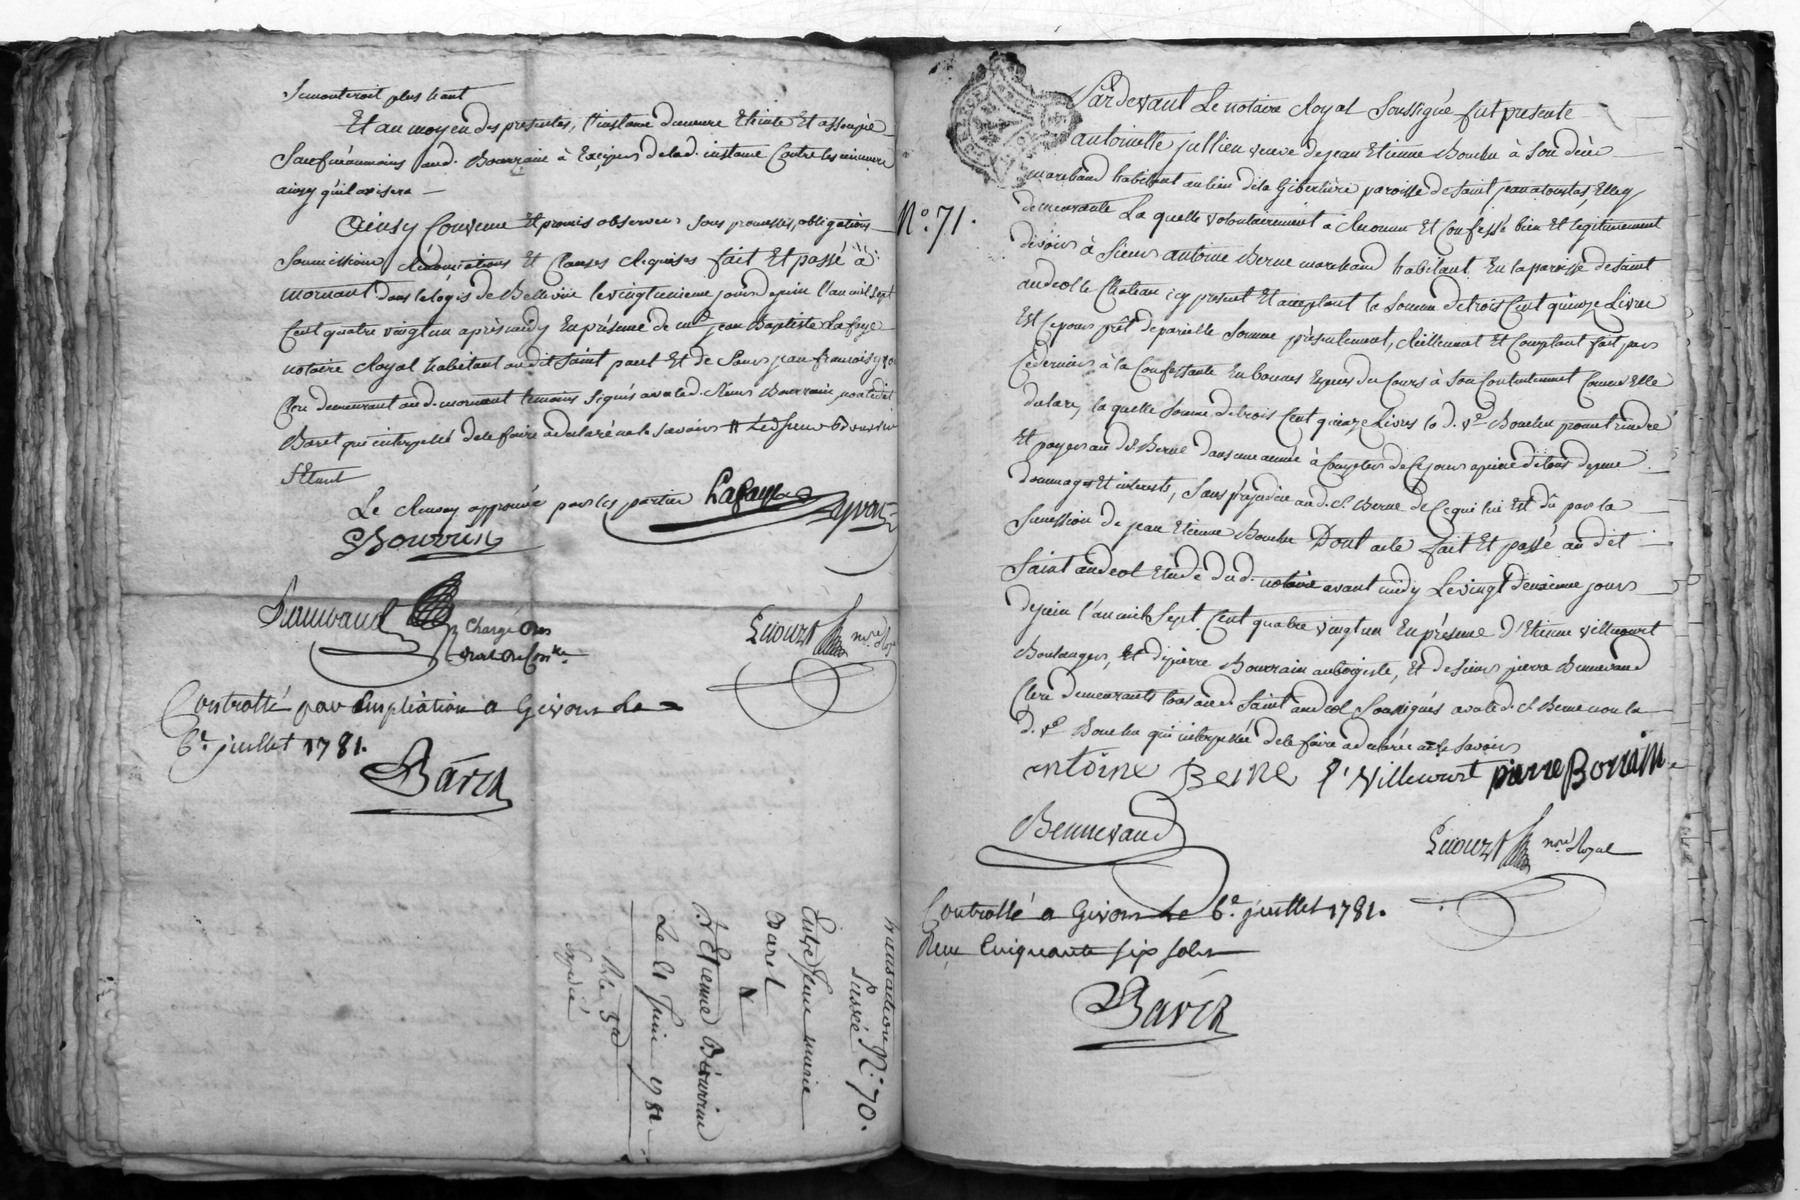 remonteroit plus haut
Et au moyen des presentes, l'instance demeure Eteinte Et assoupie
Sauf neanmoins aud. Bourrain à Exciper de lad. instance Contre les mineurs
ainsy qu'il avisera
Ainsy Convenu Et promis observer sous promesses, obligations
Soumissions Renonciations Et Clauses Requises fait Et passé à
mornant dans le logis de Bellevüe le vingtunieme jour de juin l'an mil Sept
Cent quatre vingt un après midy En présence de me jean Baptiste Lafaye
notaire Royal habitant audit Saint paul Et de Sieur jean francois yvon
Clerc demeurant aud. mornant temoins signés avec led. Sieur Bourrain, non ladite
Baret qui interpellée de le faire a declaré ne le savoir # Led sieur Bourrin
Etant
Le Renvoy approuvé par les parties Lafaye yvon
EBourrin
chargé
Gnouzt nore Royal
Controllé par Ampliation a Givors Le
6e. juillet 1781.
Baren
transaction N°. 70.
passée
Entre sieur marie
Baret
&
Sr. Etienne Bourrin
Le 21 Juin 1781
Expedié
N°. 71.
Pardevant Le notaire Royal Soussigné fut presente
antoinette jullien veuve de jean Etienne Bouchu à Son décès
marchand habitant au lieu de la Gibertière paroisse de Saint jean a touslas, Elle y
demeurante La quelle volontairement a Reconnu Et Confessé bien Et legitimement
devoir à Sieur antoine Berne marchand habitant En la paroisse de Saint
andeol le Chateau icy present Et acceptant la Somme de trois Cent quinze Livres
Est Ce pour prêt de pareille Somme présentement, Réellement Et Comptant fait par
Ce dernier à la Confessante En bonnes Especes du Cours à Son Contentement Comme Elle
declare, la quelle Somme de trois Cent quinze Livres la d. ve. Bouchu promet rendre
Et payer au dit Berne dans une année à Compter de Ce jour a peine de tous depens
dommages Et interests, Sans préjudice aud. S. Berne de Ce qui lui Est dû par la
Succession de jean Etienne Bouchu Dont acte fait Et passé audit
Saint andeol Etude dud. notaire avant midy Le vingt deuxieme jour
de juin l'an mil Sept Cent quatre vingt un En présence d'Etienne villecourt
Boulanger, Et de pierre Bourrain aubergiste, Et de Sieur pierre Bennevand
Clerc demeurants tous aud. Saint andeol Soussignés avec led. S. Berne non la
d. ve. Bouchu qui interpellée de le faire a declaré ne le Savoir
antoine Berne E Villecourt pierre Borrain
Bennevand
Gnouzt nore. Royal
Controllé a Givors Le 6e. juillet 1781.
Reçu Cinquante six sols
Baren